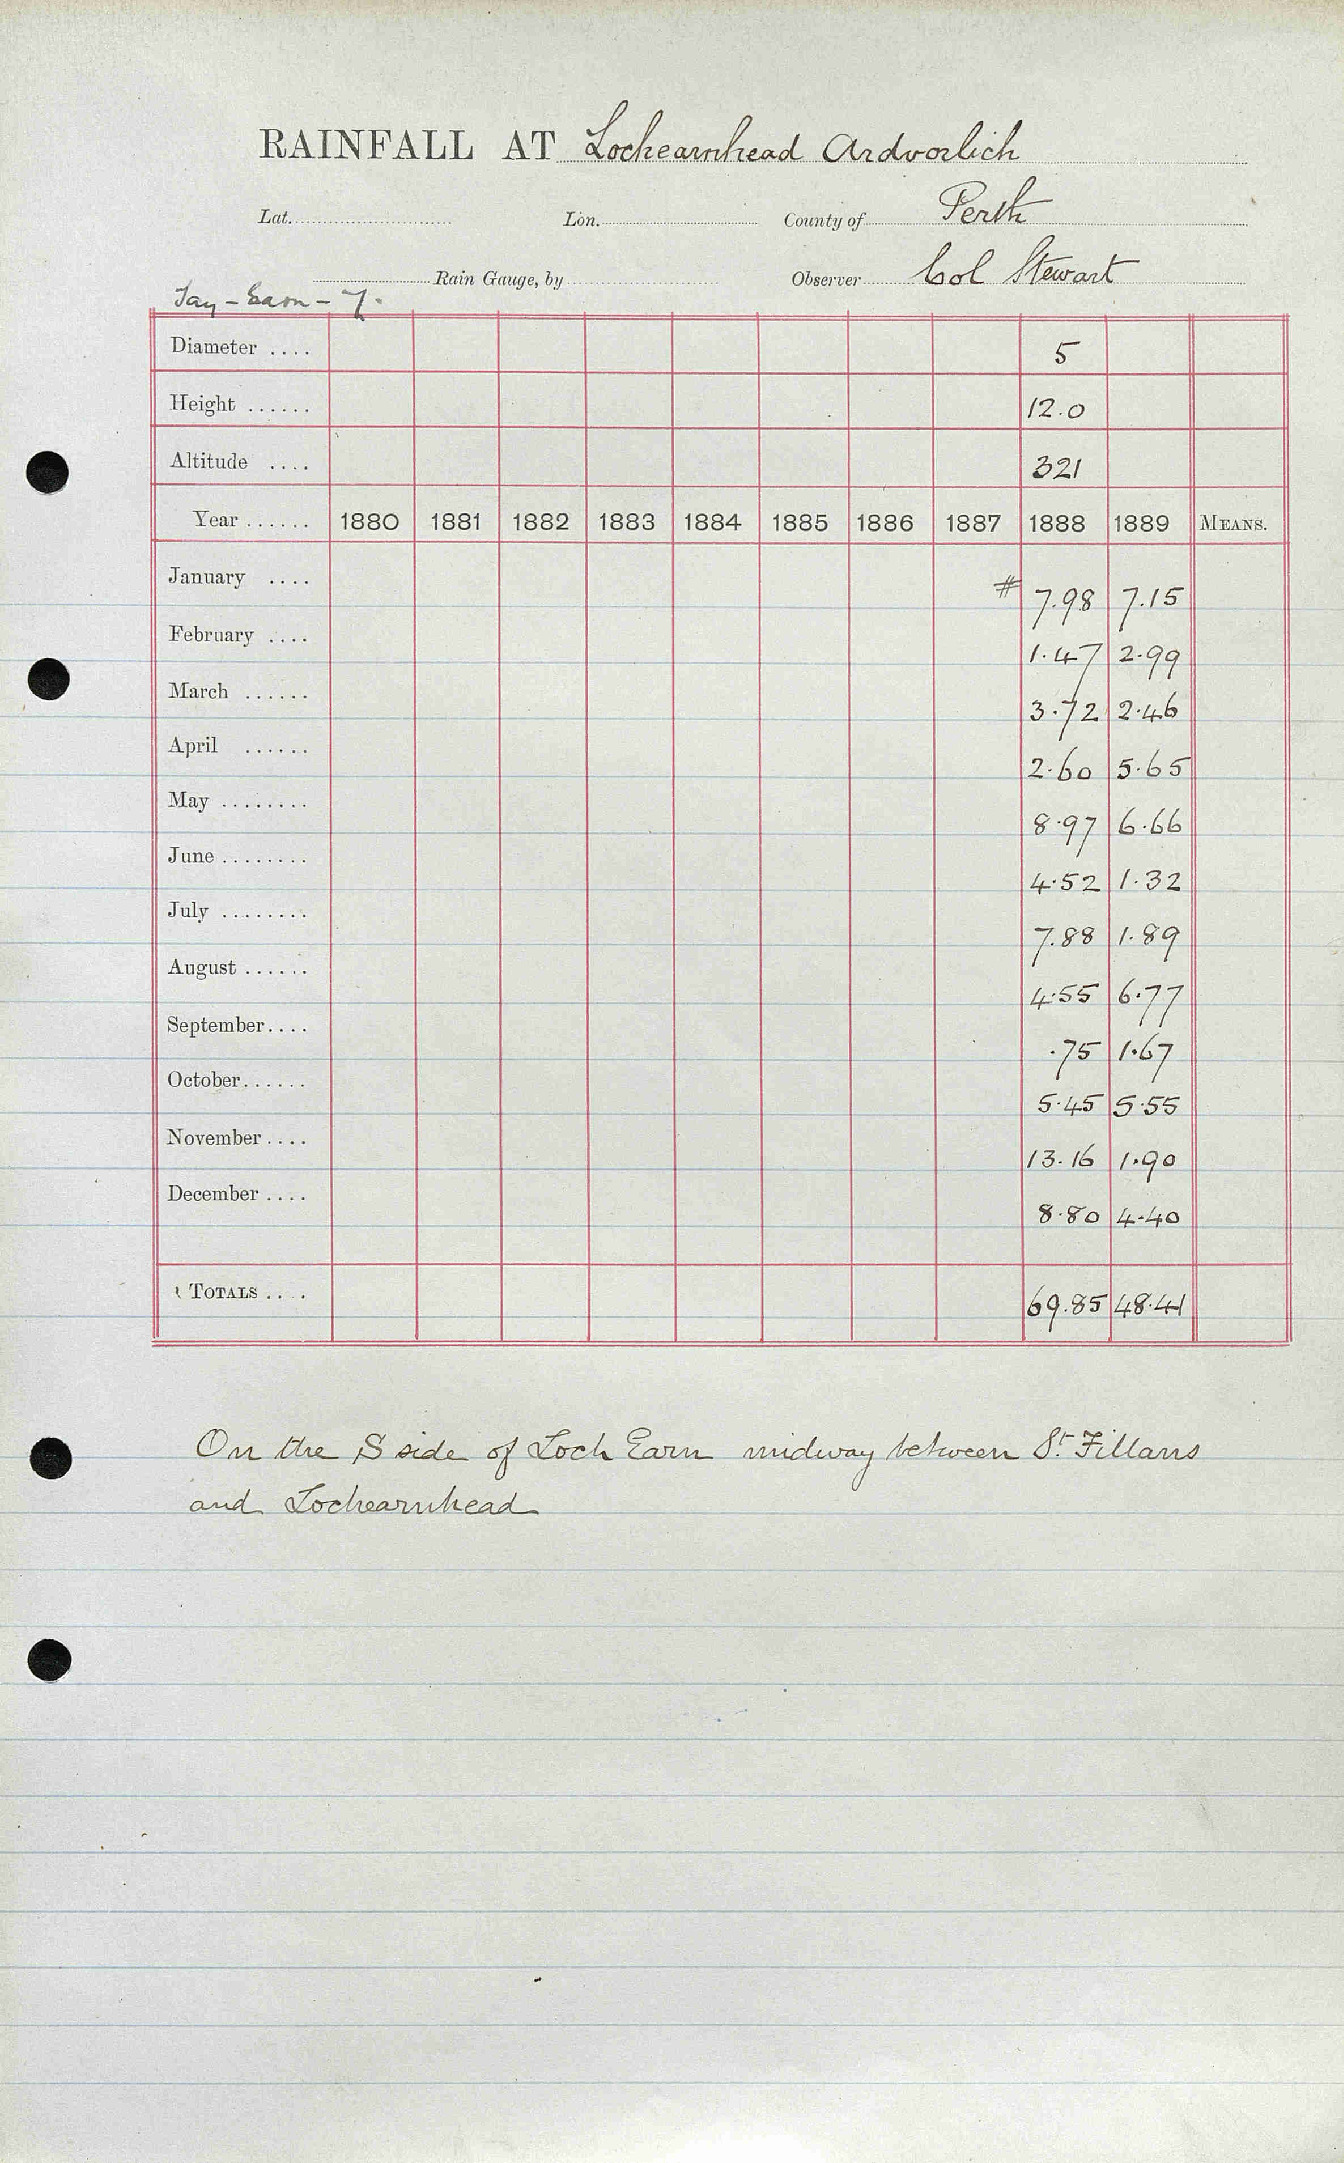 RAINFALL AT Lochearnhead Ardvorlich
Lat. Lon. County of Perth
Rain Gauge, by Observer Col Stewart
Tay - Earn - 7.
Diameter .... 5
Height ...... 12.0
Altitude .... 321
Year ...... 1880 1881 1882 1883 1884 1885 1886 1887 1888 1889 MEANS.
January .... # 7.98 7.15
February .... 1.47 2.99
March ...... 3.72 2.46
April ...... 2.60 5.65
May ........ 8.97 6.66
June ........ 4.52 1.32
July ........ 7.88 1.89
August ...... 4.55 6.77
September.... .75 1.67
October...... 5.45 5.55
November.... 13.16 1.90
December .... 8.80 4.40
TOTALS .... 69.85 48.41
On the S side of Loch Earn midway between St Fillans
and Lochearnhead